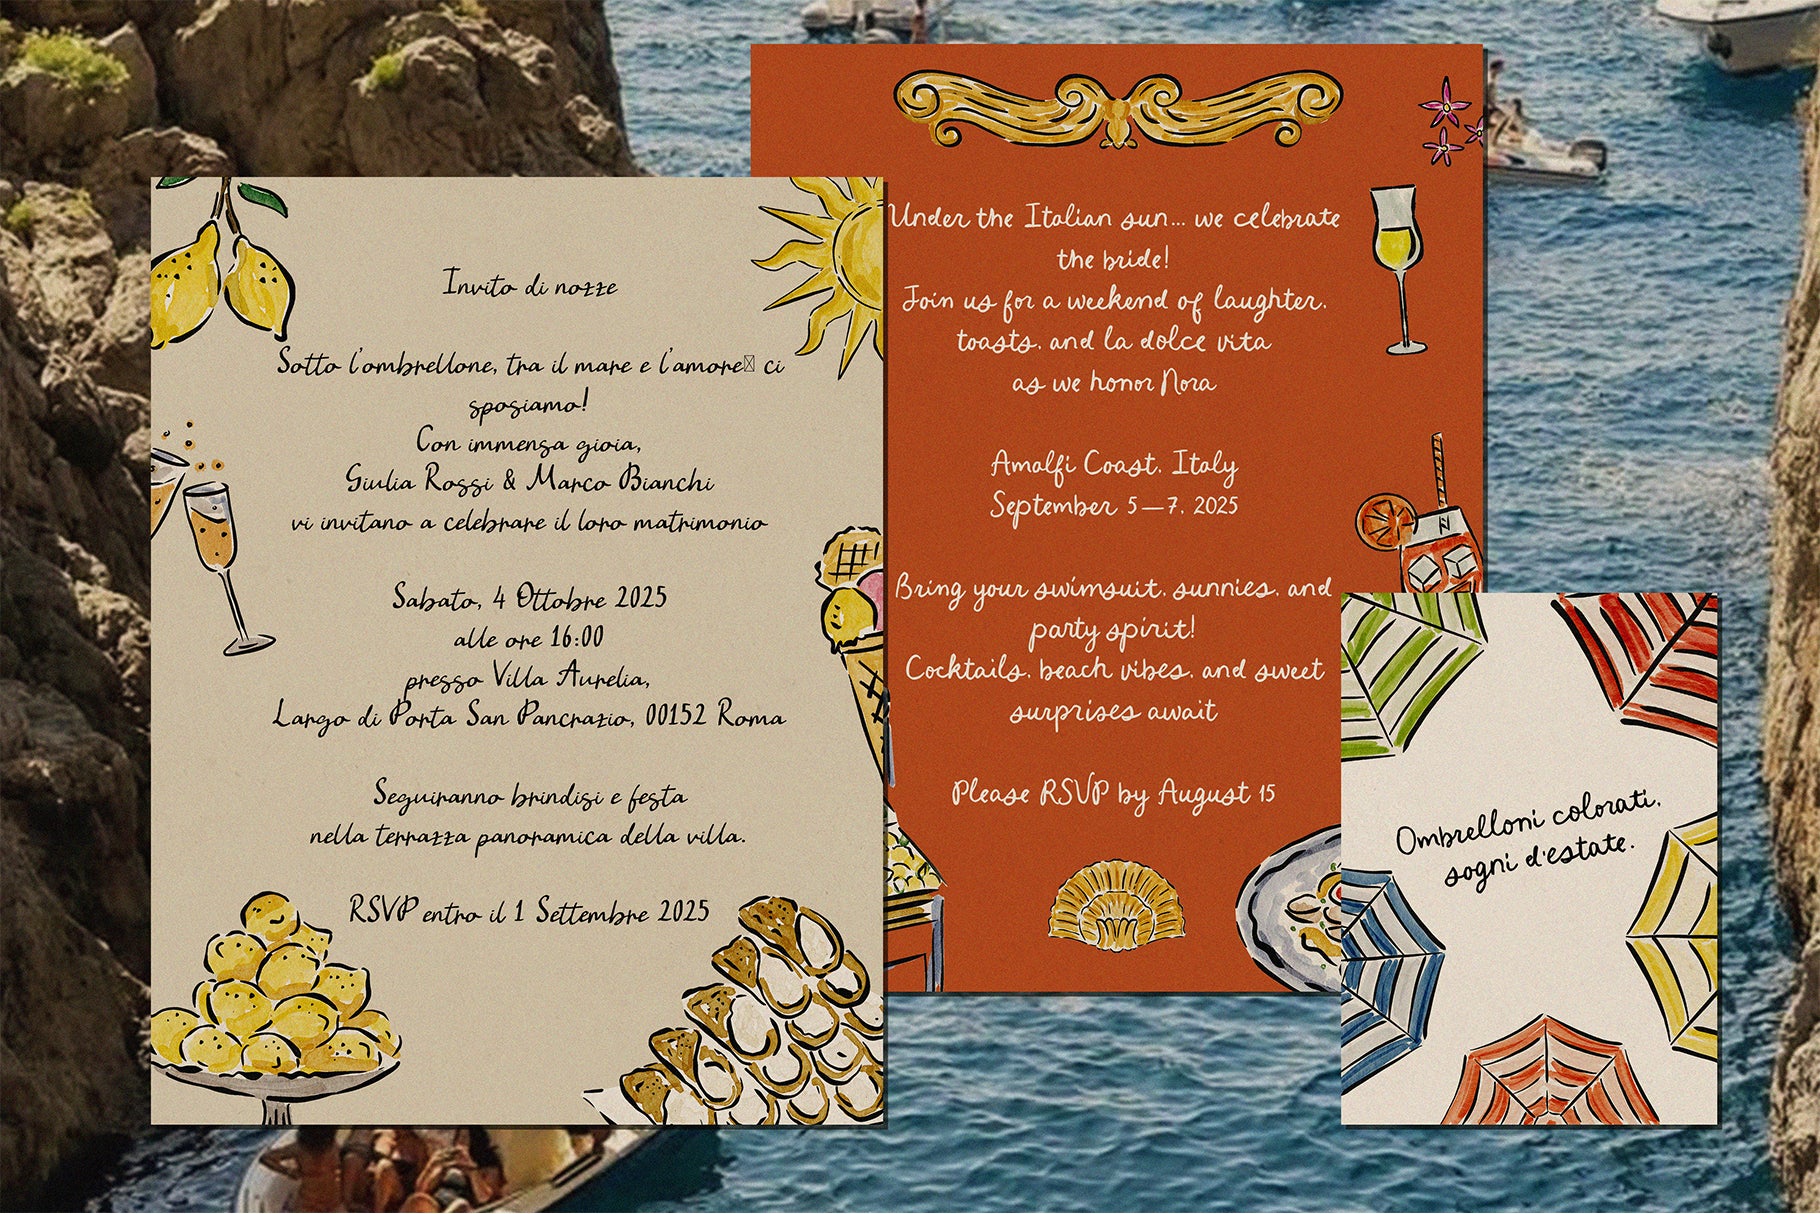 Invito di nozze
Sotto l'ombrellone, tra il mare e l'amore ci
sposiamo!
Con immensa gioia,
Giulia Rossi & Marco Bianchi
vi invitano a celebrare il loro matrimonio
Sabato, 4 Ottobre 2025
alle ore 16:00
presso Villa Aurelia,
Largo di Porta San Pancrazio, 00152 Roma
Seguiranno brindisi e festa
nella terrazza panoramica della villa.
RSVP entro il 1 Settembre 2025
Under the Italian sun... we celebrate
the bride!
Join us for a weekend of laughter.
toasts. and la dolce vita
as we honor Nora
Amalfi Coast. Italy
September 5—7. 2025
Bring your swimsuit. sunnies. and
party spirit!
Cocktails. beach vibes. and sweet
surprises await
Please RSVP by August 15
Ombrelloni colorati.
sogni d'estate.